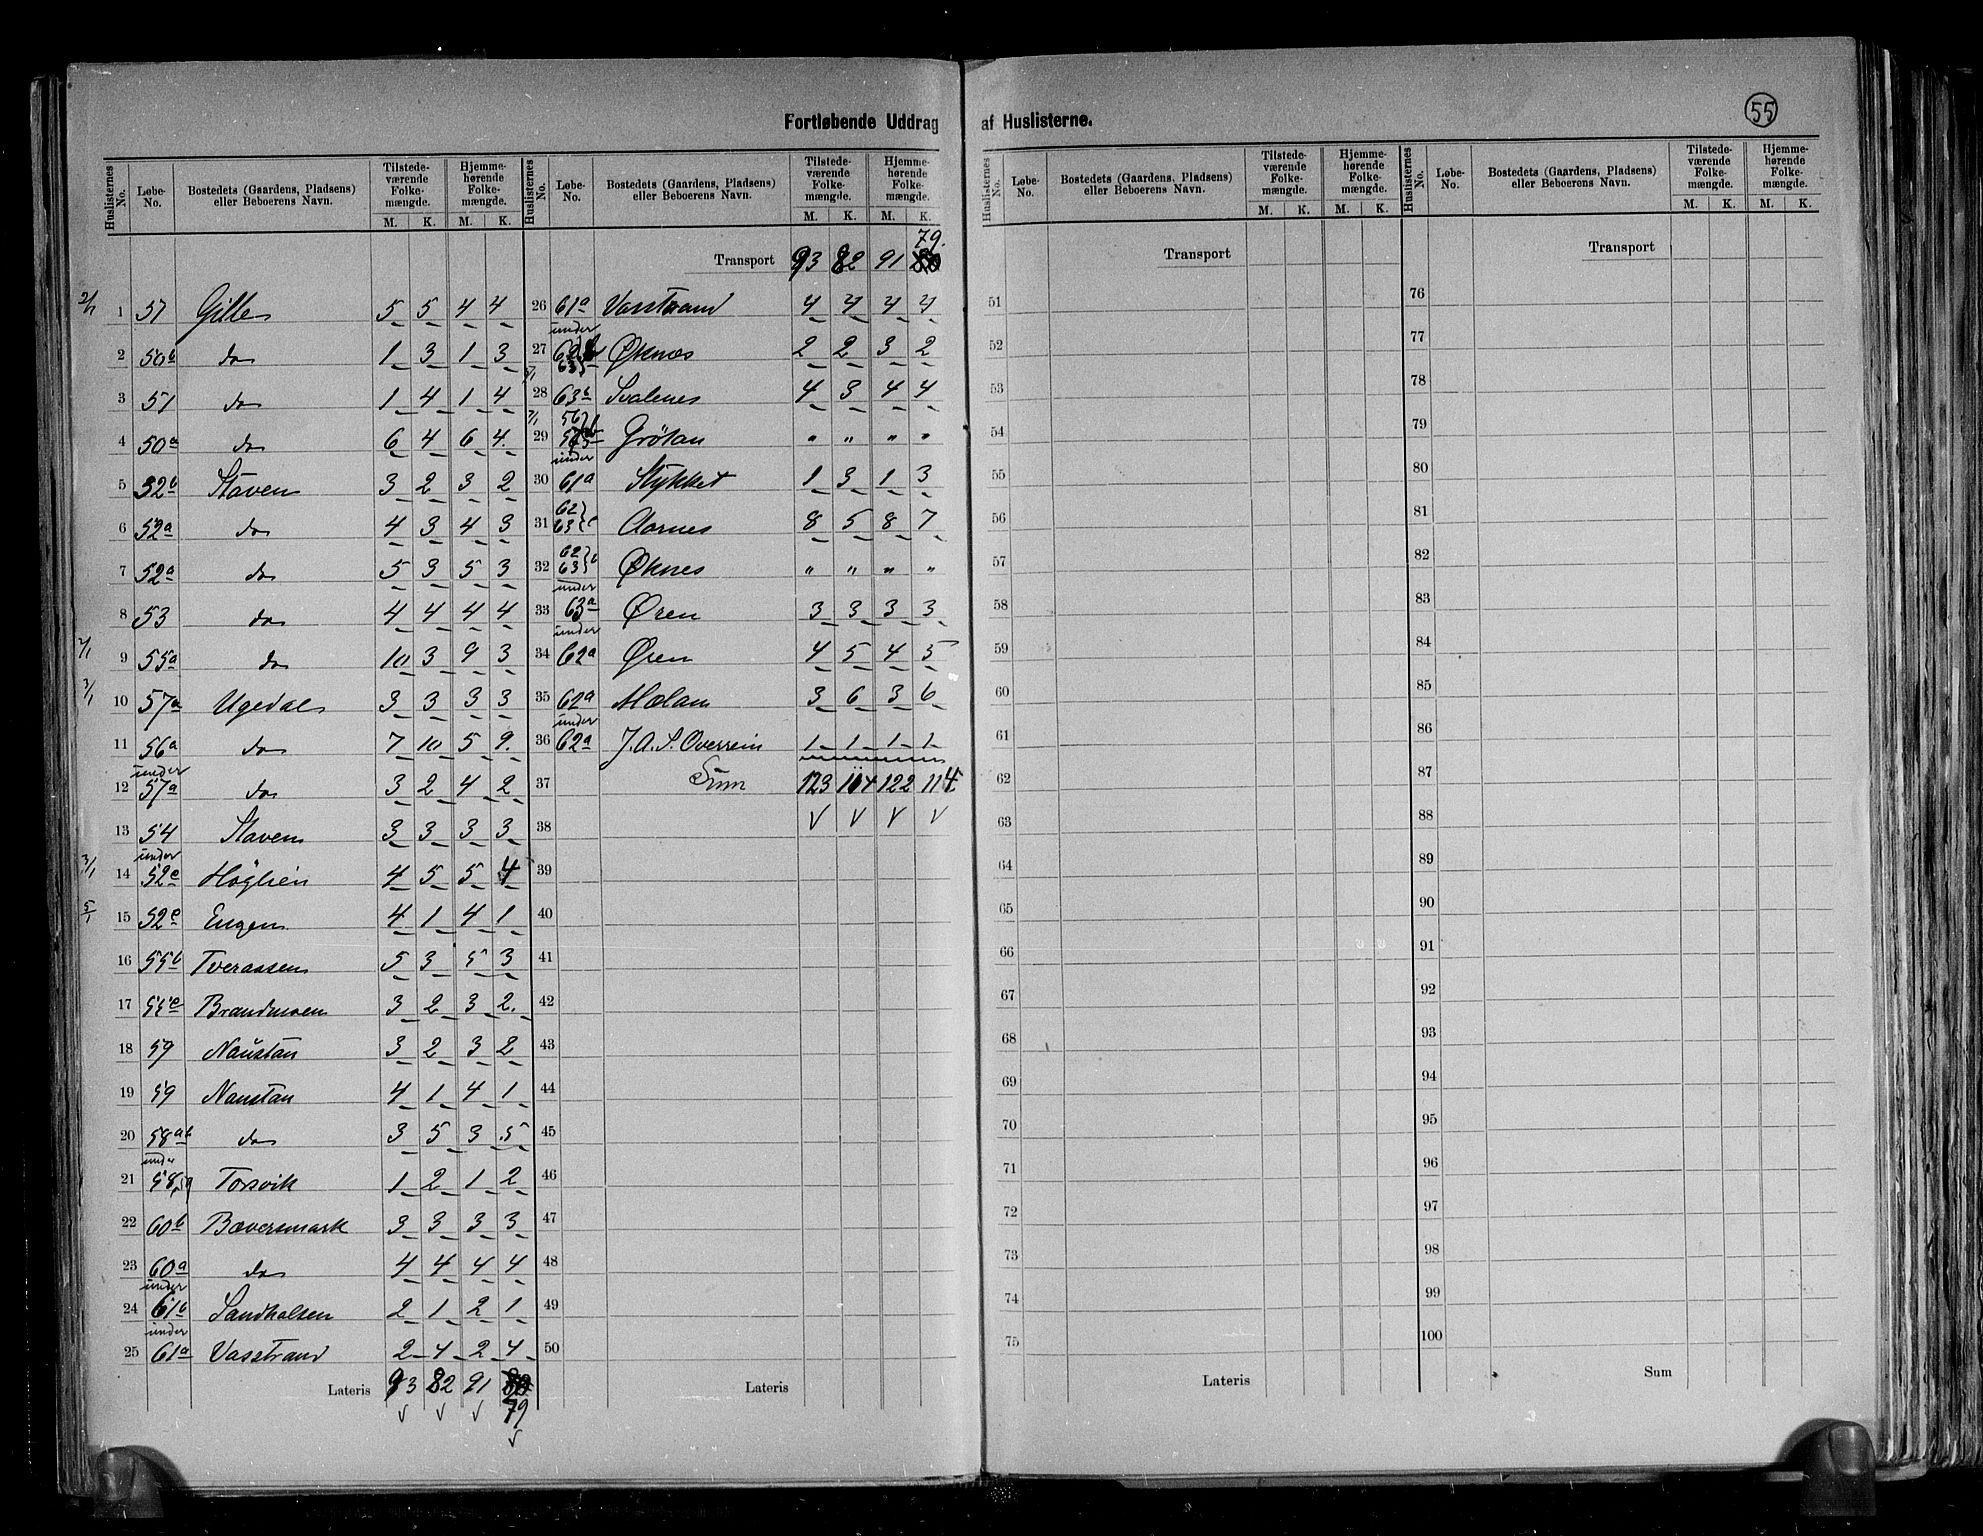 55
Fortløbende Uddrag af Huslisterne.
Huslisternes No. Løbe-No. Bostedets (Gaardens, Pladsens) eller Beboerens Navn. Tilstedeværende Folkemængde. M. K. Hjemmehørende Folkemængde. M. K.
2/1 1 57 Gille 5 5 4 4
2 50b do 1 3 1 3
3 51 do 1 4 1 4
4 50a do 6 4 6 4
5 52b Staven 3 2 3 2
6 52a do 4 3 4 3
7 52a do 5 3 5 3
8 53 do 4 4 4 4
9 55a do 10 3 9 3
3/1 10 57a Ugedal 3 3 3 3
11 56a do 7 10 5 9.
12 under 57a do 3 2 4 2
13 54 Staven 3 3 3 3
3/1 14 under 52c Höglien 4 5 5 4
5/1 15 52c Engen 4 1 4 1
16 55b Tveraasen 5 3 5 3
17 55c Brandmoen 3 2 3 2.
18 59 Naustan 3 2 3 2
19 59 Naustan 4 1 4 1
20 58ab do 3 5 3 5
21 under 58a Torsvik 1 2 1 2
22 60b Bæversmark 3 3 3 3
23 60a do 4 4 4 4
24 under 61b Sandholsen 2 1 2 1
25 under 61a Vasstrand 2 4 2 4
Lateris 93 82 91 80 79
Huslisternes No. Løbe-No. Bostedets (Gaardens, Pladsens) eller Beboerens Navn. Tilstedeværende Folkemængde. M. K. Hjemmehørende Folkemængde. M. K.
Transport 93 82 91 80 79.
26 61a Vasstrand 4 4 4 4
27 under 62 63 b Øknes 2 2 3 2
28 63b Svalenes 4 3 4 4
29 56 Grötan " " " "
30 under 61a Stykket 1 3 1 3
31 62 63 c Aarnes 8 5 8 7
32 62 63 b Øknes " " " "
33 under 63a Øren 3 3 3 3
34 under 62a Øren 4 5 4 5
35 62a Molan 3 6 3 6
36 under 62a J.A.S. Overrein 1 1 1 1
37 Sum 123 114 122 114
38
39
40
41
42
43
44
45
46
47
48
49
50
Lateris
Huslisternes No. Løbe-No. Bostedets (Gaardens, Pladsens) eller Beboerens Navn. Tilstedeværende Folkemængde. M. K. Hjemmehørende Folkemængde. M. K.
Transport
51
52
53
54
55
56
57
58
59
60
61
62
63
64
65
66
67
68
69
70
71
72
73
74
75
Lateris
Huslisternes No. Løbe-No. Bostedets (Gaardens, Pladsens) eller Beboerens Navn. Tilstedeværende Folkemængde. M. K. Hjemmehørende Folkemængde. M. K.
Transport
76
77
78
79
80
81
82
83
84
85
86
87
88
89
90
91
92
93
94
95
96
97
98
99
100
Sum